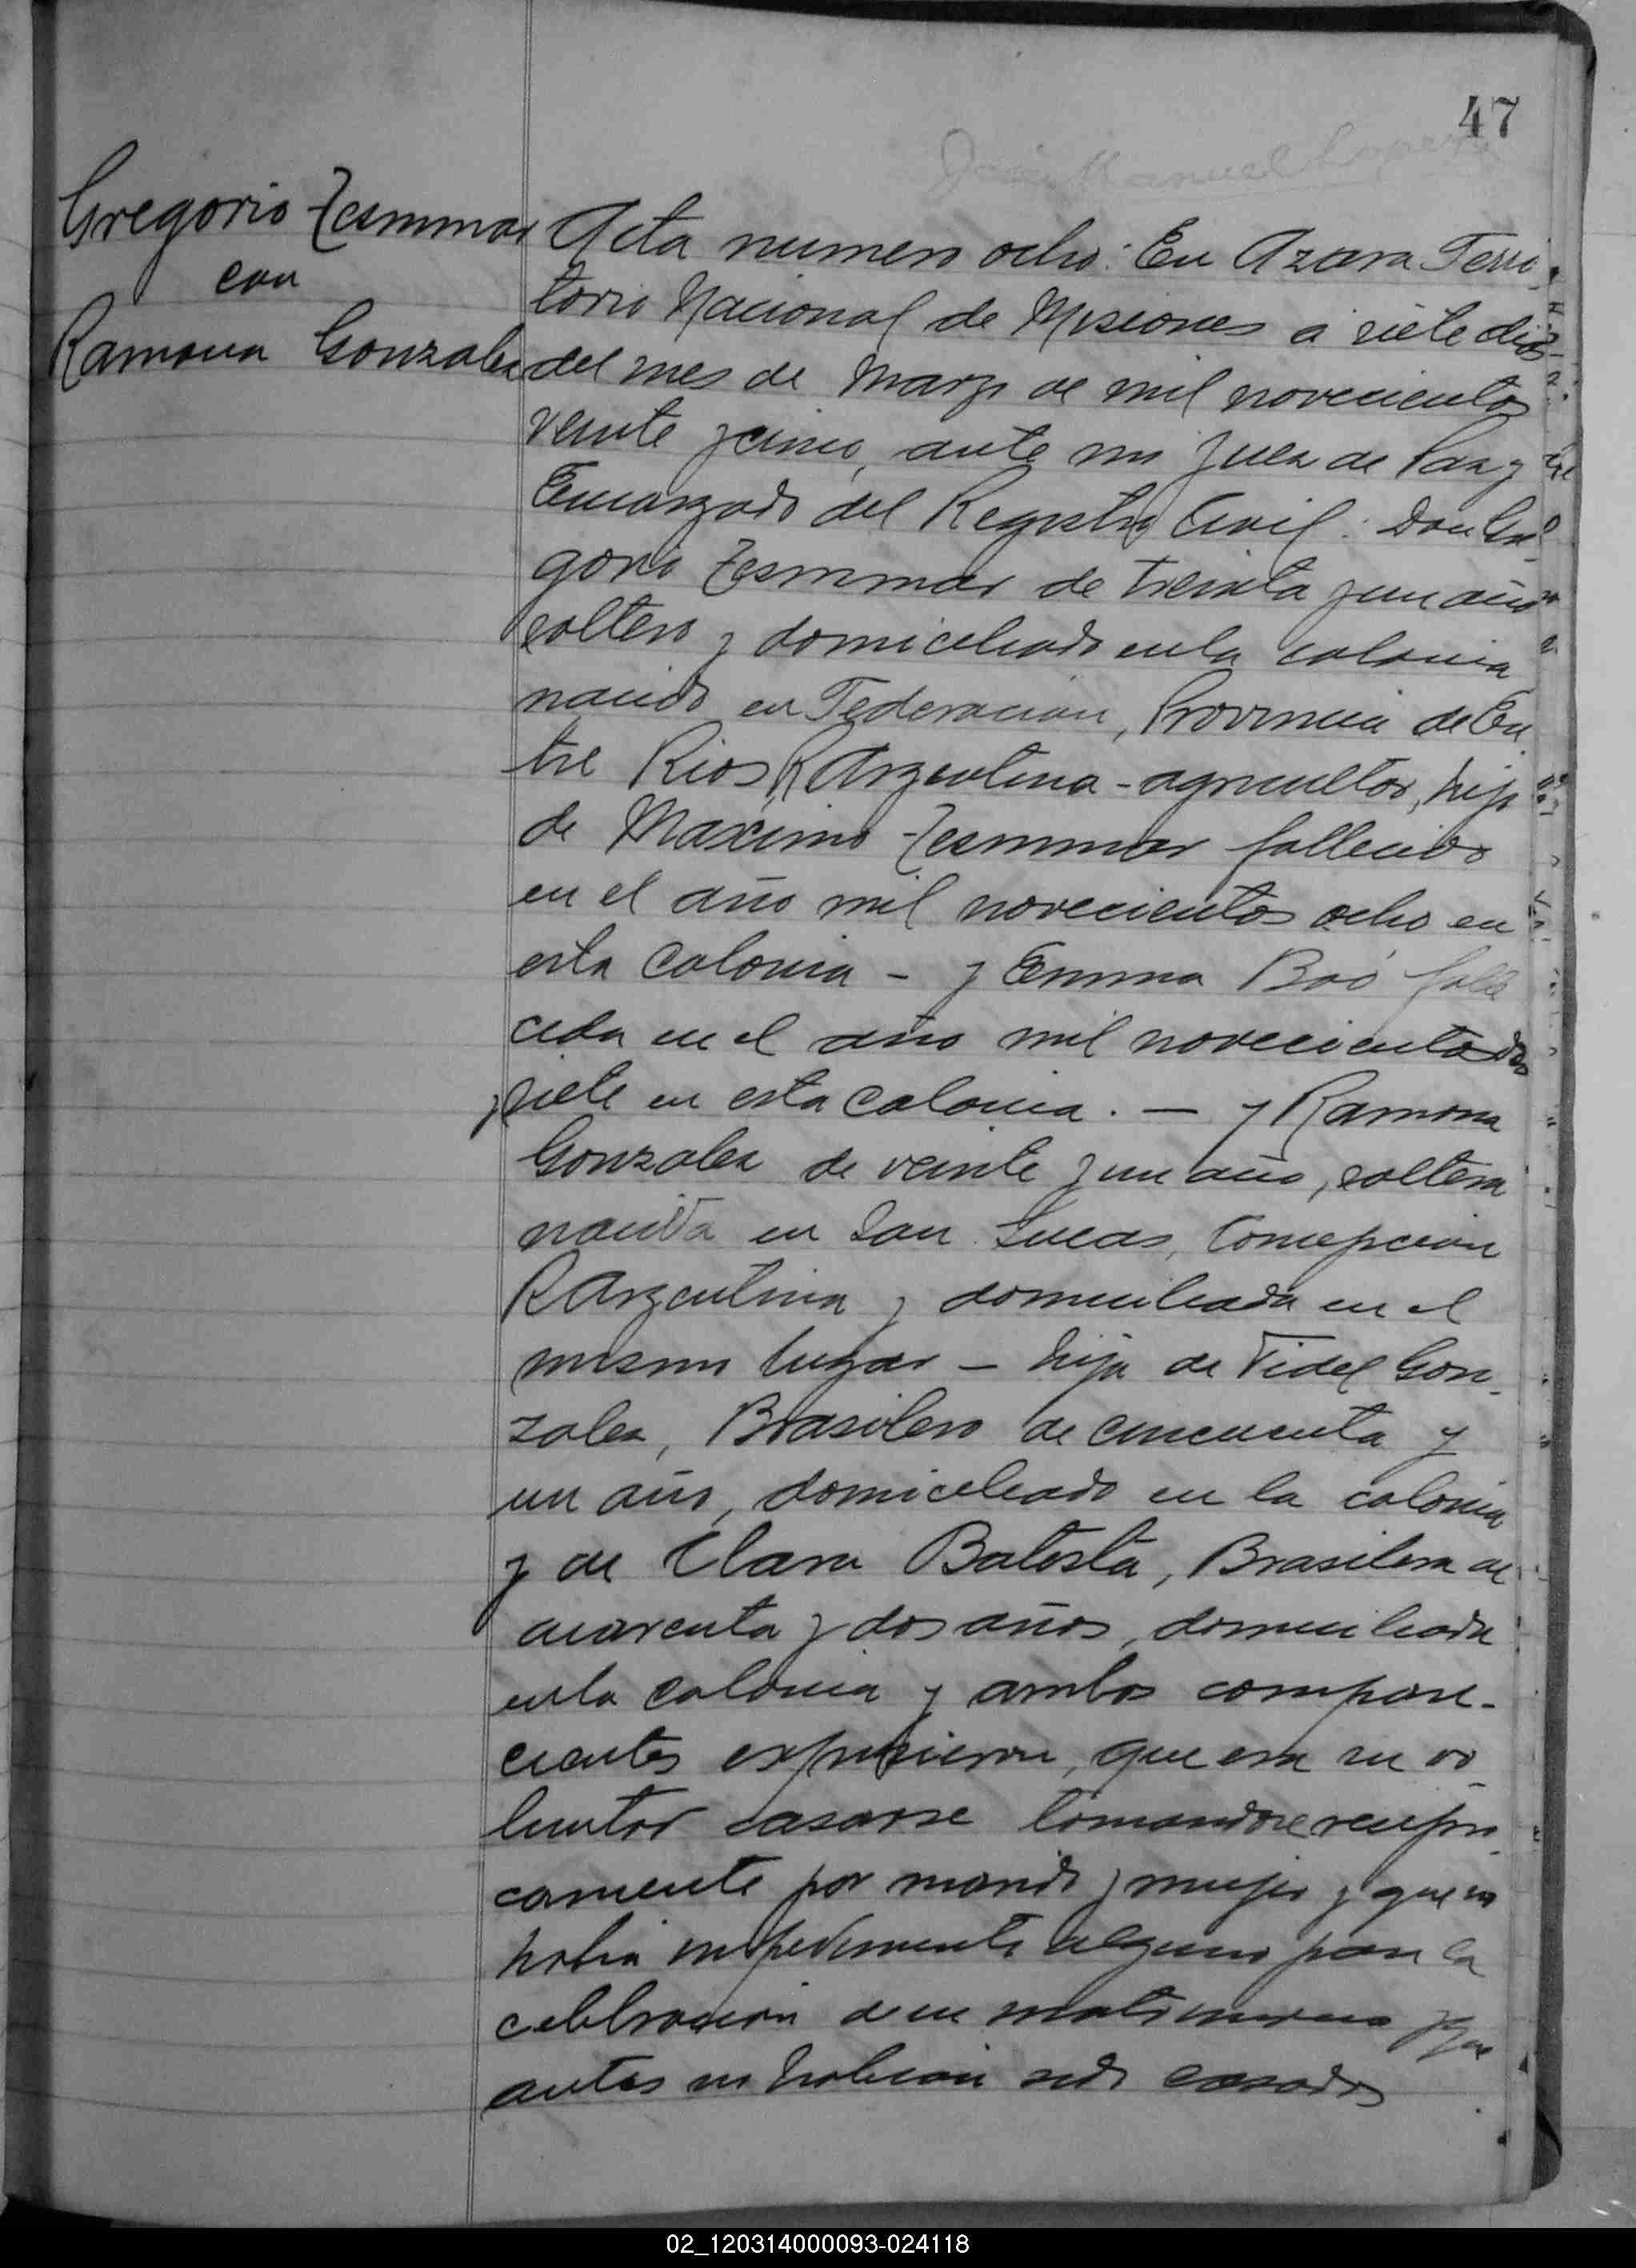 47
José Manuel Lopez
Gregorio Zesmmar
con
Ramona Gonzalez
Acta numero ocho: En Azara Terri
torio Nacional de Misiones a siete dias
del mes de Marzo de mil novecientos
veinte y cinco, ante mi Juez de Paz y
Encargado del Registro Civil: Don Gre
gorio Zesmmar de treinta y un año
soltero y domiciliado en la colonia
nacido en Federacion, Provincia de En
tre Rios, R Argentina - agricultor, hijo
de Maximo Zesmmar fallecido
en el año mil novecientos ocho en
esta Colonia - y Emma Boó falle
cida en el año mil novecientos dos
y siete en esta Colonia. — y Ramona
Gonzalez de veinte y un año, soltera
nacida en San Lucas, Concepcion
R Argentina y domiciliada en el
mismo lugar - hija de Fidel Gon-
zalez, Brasilero de cincuenta y
un año, domiciliado en la colonia
y de Clara Batista, Brasilera de
cuarenta y dos años, domiciliada
en la colonia y ambos compare-
cientes expusieron, que era su vo
luntad casarse tomandose recipro
camente por marido y mujer y que no
habia impedimento alguno para la
celebracion de su matrimonio y que
antes no habian sido casados
02_120314000093-024118